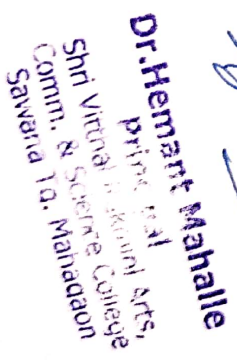 Dr.Hemant Mahalle
principal
Shri Vitthal Rukmini Arts,
Comm. & Science College
Sawana Tq. Mahagaon